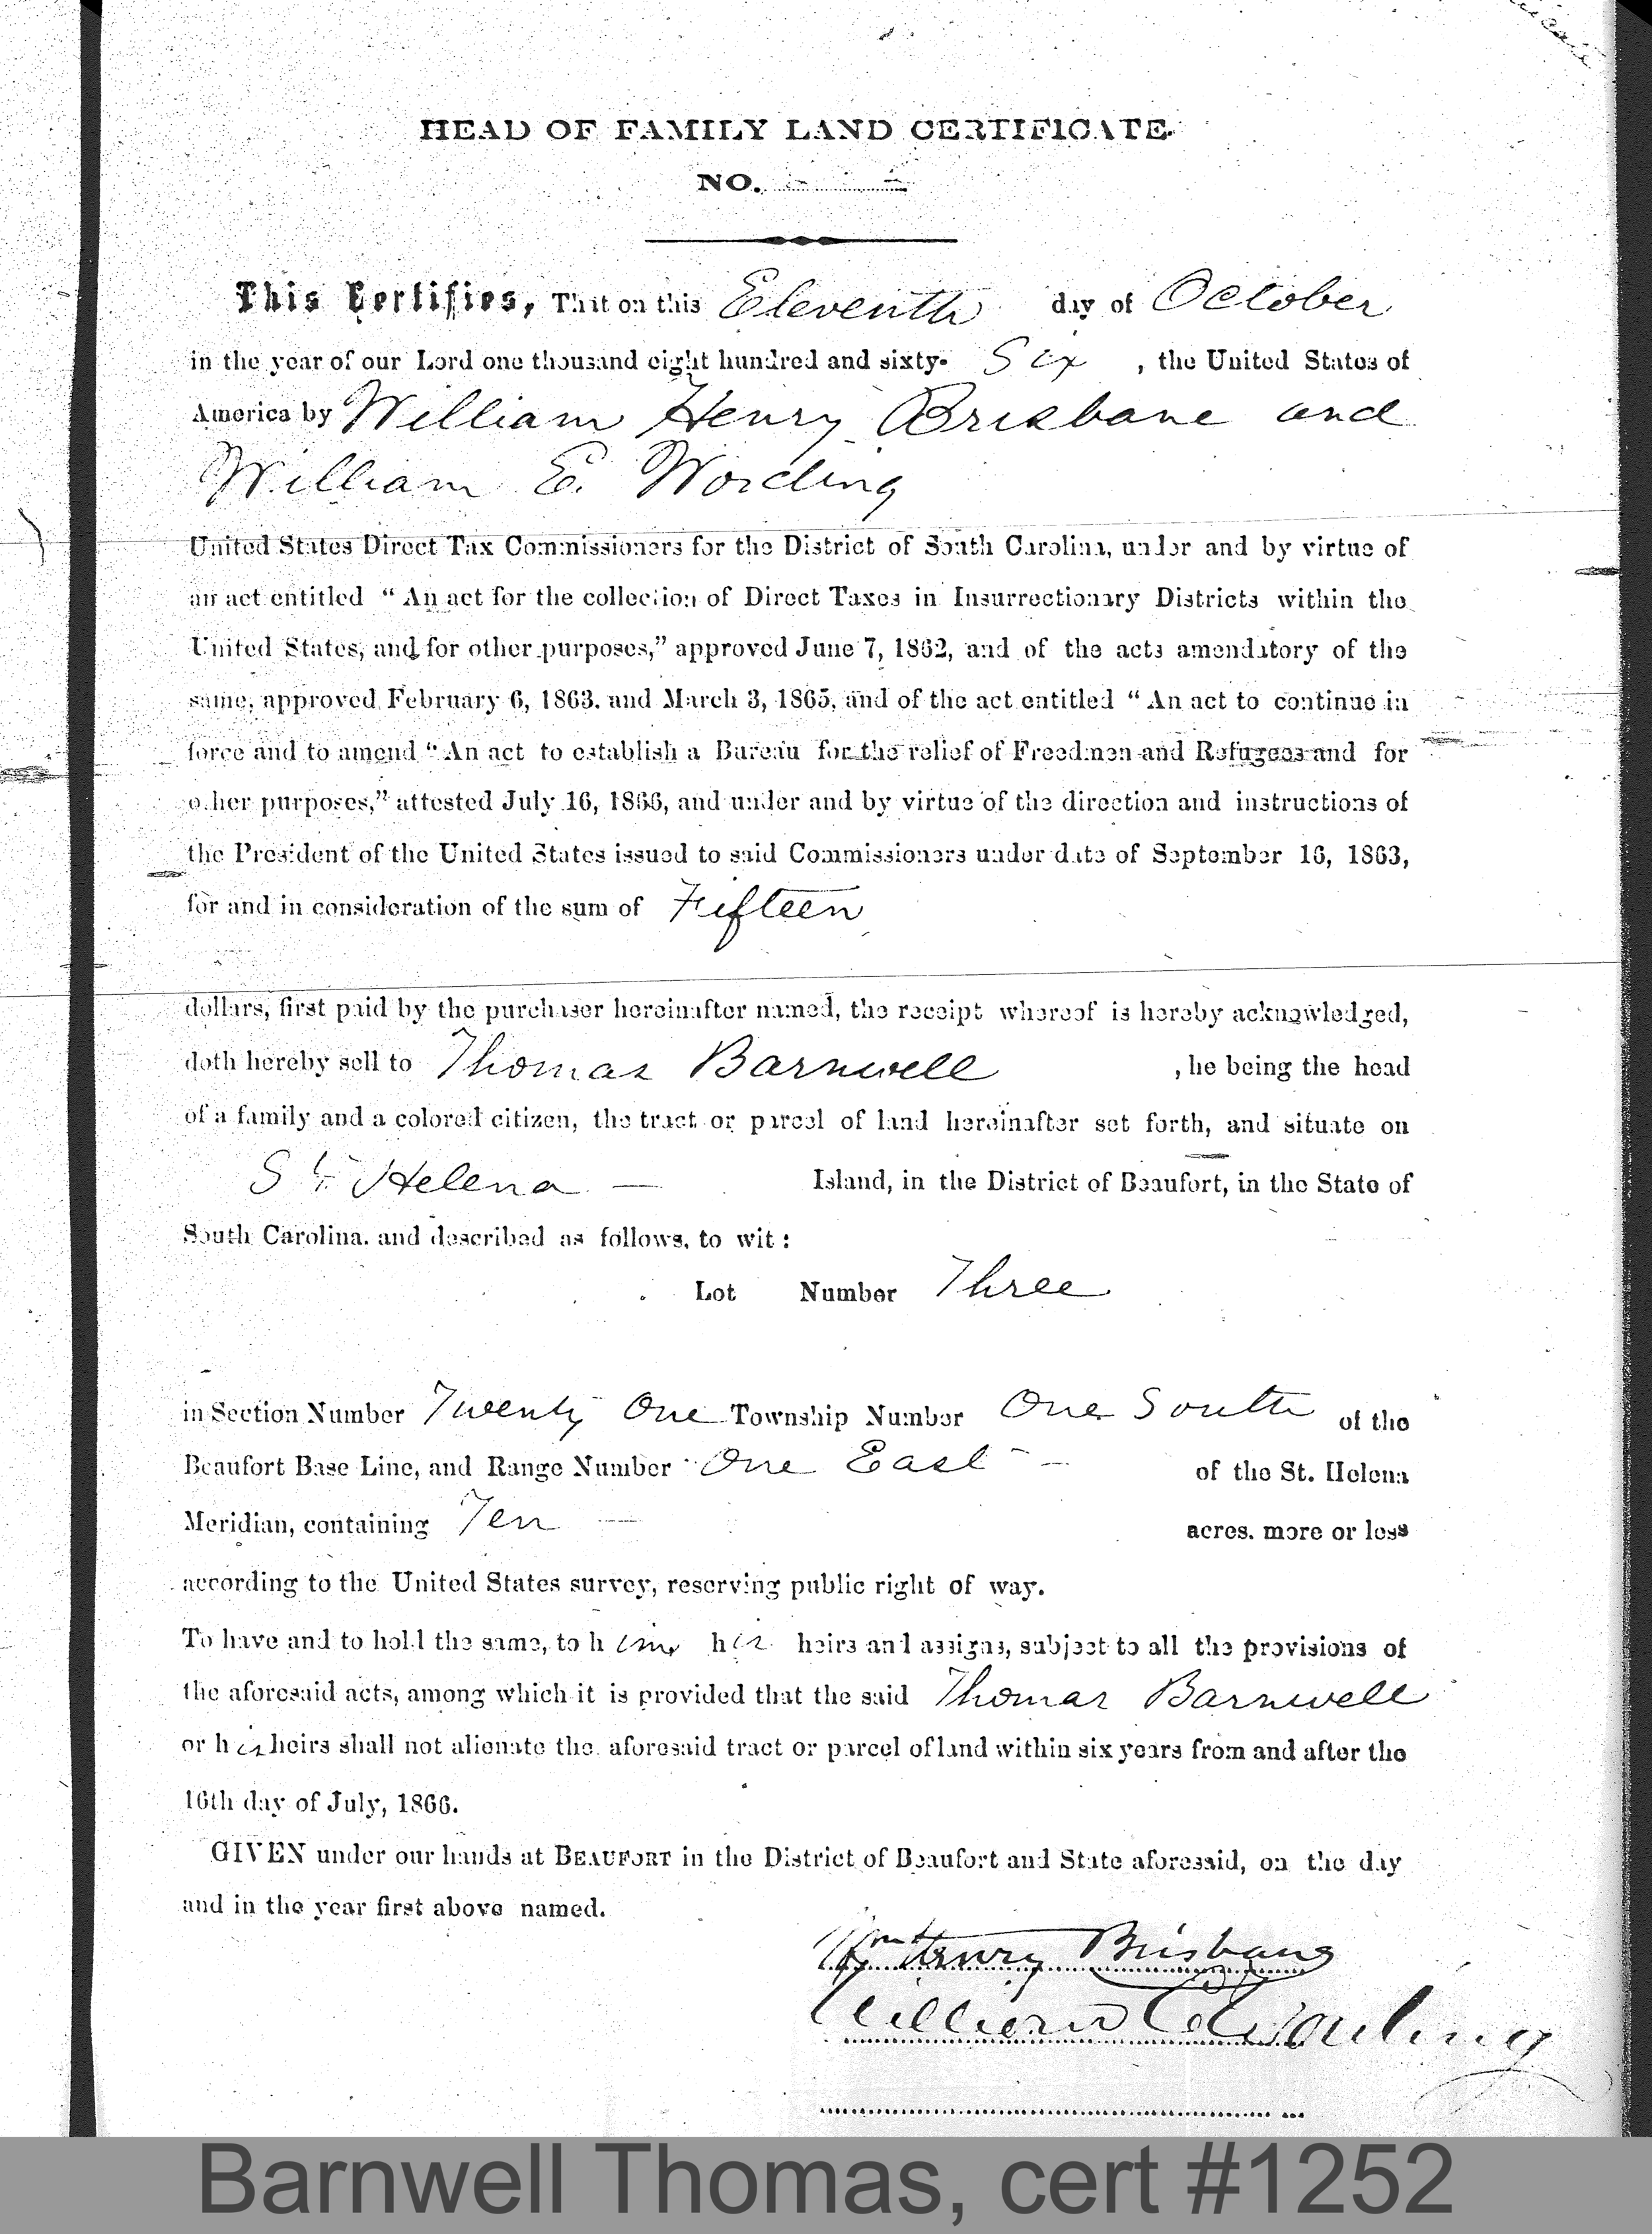 HEAD OF FAMILY LAND CERTIFICATE.
NO.
This Certifies, That on this Eleventh day of October
in the year of our Lord one thousand eight hundred and sixty- Six , the United States of
America by William Henry Brisbane and
William E. Wording
United States Direct Tax Commissioners for the District of South Carolina, under and by virtue of
an act entitled “ An act for the collection of Direct Taxes in Insurrectionary Districts within the
United States, and for other purposes,” approved June 7, 1862, and of the acts amendatory of the
same, approved February 6, 1863. and March 3, 1865, and of the act entitled “ An act to continue in
force and to amend “ An act to establish a Bureau for the relief of Freedmen and Refugees and for
other purposes,” attested July 16, 1866, and under and by virtue of the direction and instructions of
the President of the United States issued to said Commissioners under date of September 16, 1863,
for and in consideration of the sum of Fifteen
dollars, first paid by the purchaser hereinafter named, the receipt whereof is hereby acknowledged,
doth hereby sell to Thomas Barnwell , he being the head
of a family and a colored citizen, the tract or parcel of land hereinafter set forth, and situate on
St. Helena — Island, in the District of Beaufort, in the State of
South Carolina. and described as follows, to wit :
Lot Number Three
in Section Number Twenty One Township Number One South of the
Beaufort Base Line, and Range Number One East — of the St. Helena
Meridian, containing Ten — acres. more or less
according to the United States survey, reserving public right of way.
To have and to hold the same, to him his heirs and assigns, subject to all the provisions of
the aforesaid acts, among which it is provided that the said Thomas Barnwell
or his heirs shall not alienate the aforesaid tract or parcel of land within six years from and after the
16th day of July, 1866.
GIVEN under our hands at BEAUFORT in the District of Beaufort and State aforesaid, on the day
and in the year first above named.
Wm Henry Brisbane
William E Wording
Barnwell Thomas, cert #1252